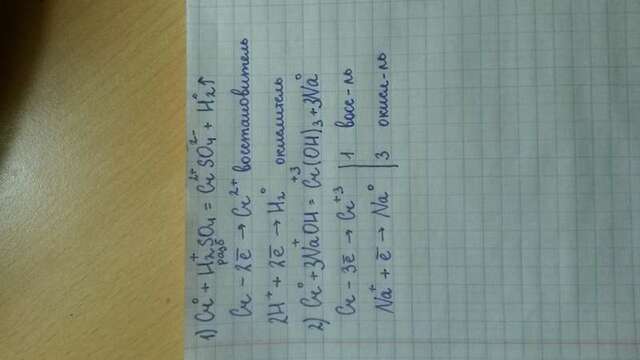 1) Cr⁰ + H₂⁺SO₄ = Cr²⁺SO₄²⁻ + H₂⁰↑
разб
Cr - 2ē → Cr²⁺ восстановитель
2H⁺ + 2ē → H₂⁰ окислитель
2) Cr⁰ + 3Na⁺OH = Cr⁺³(OH)₃ + 3Na⁰
Cr - 3ē → Cr⁺³ | 1 восс-ль
Na⁺ + ē → Na⁰ | 3 окисл-ль